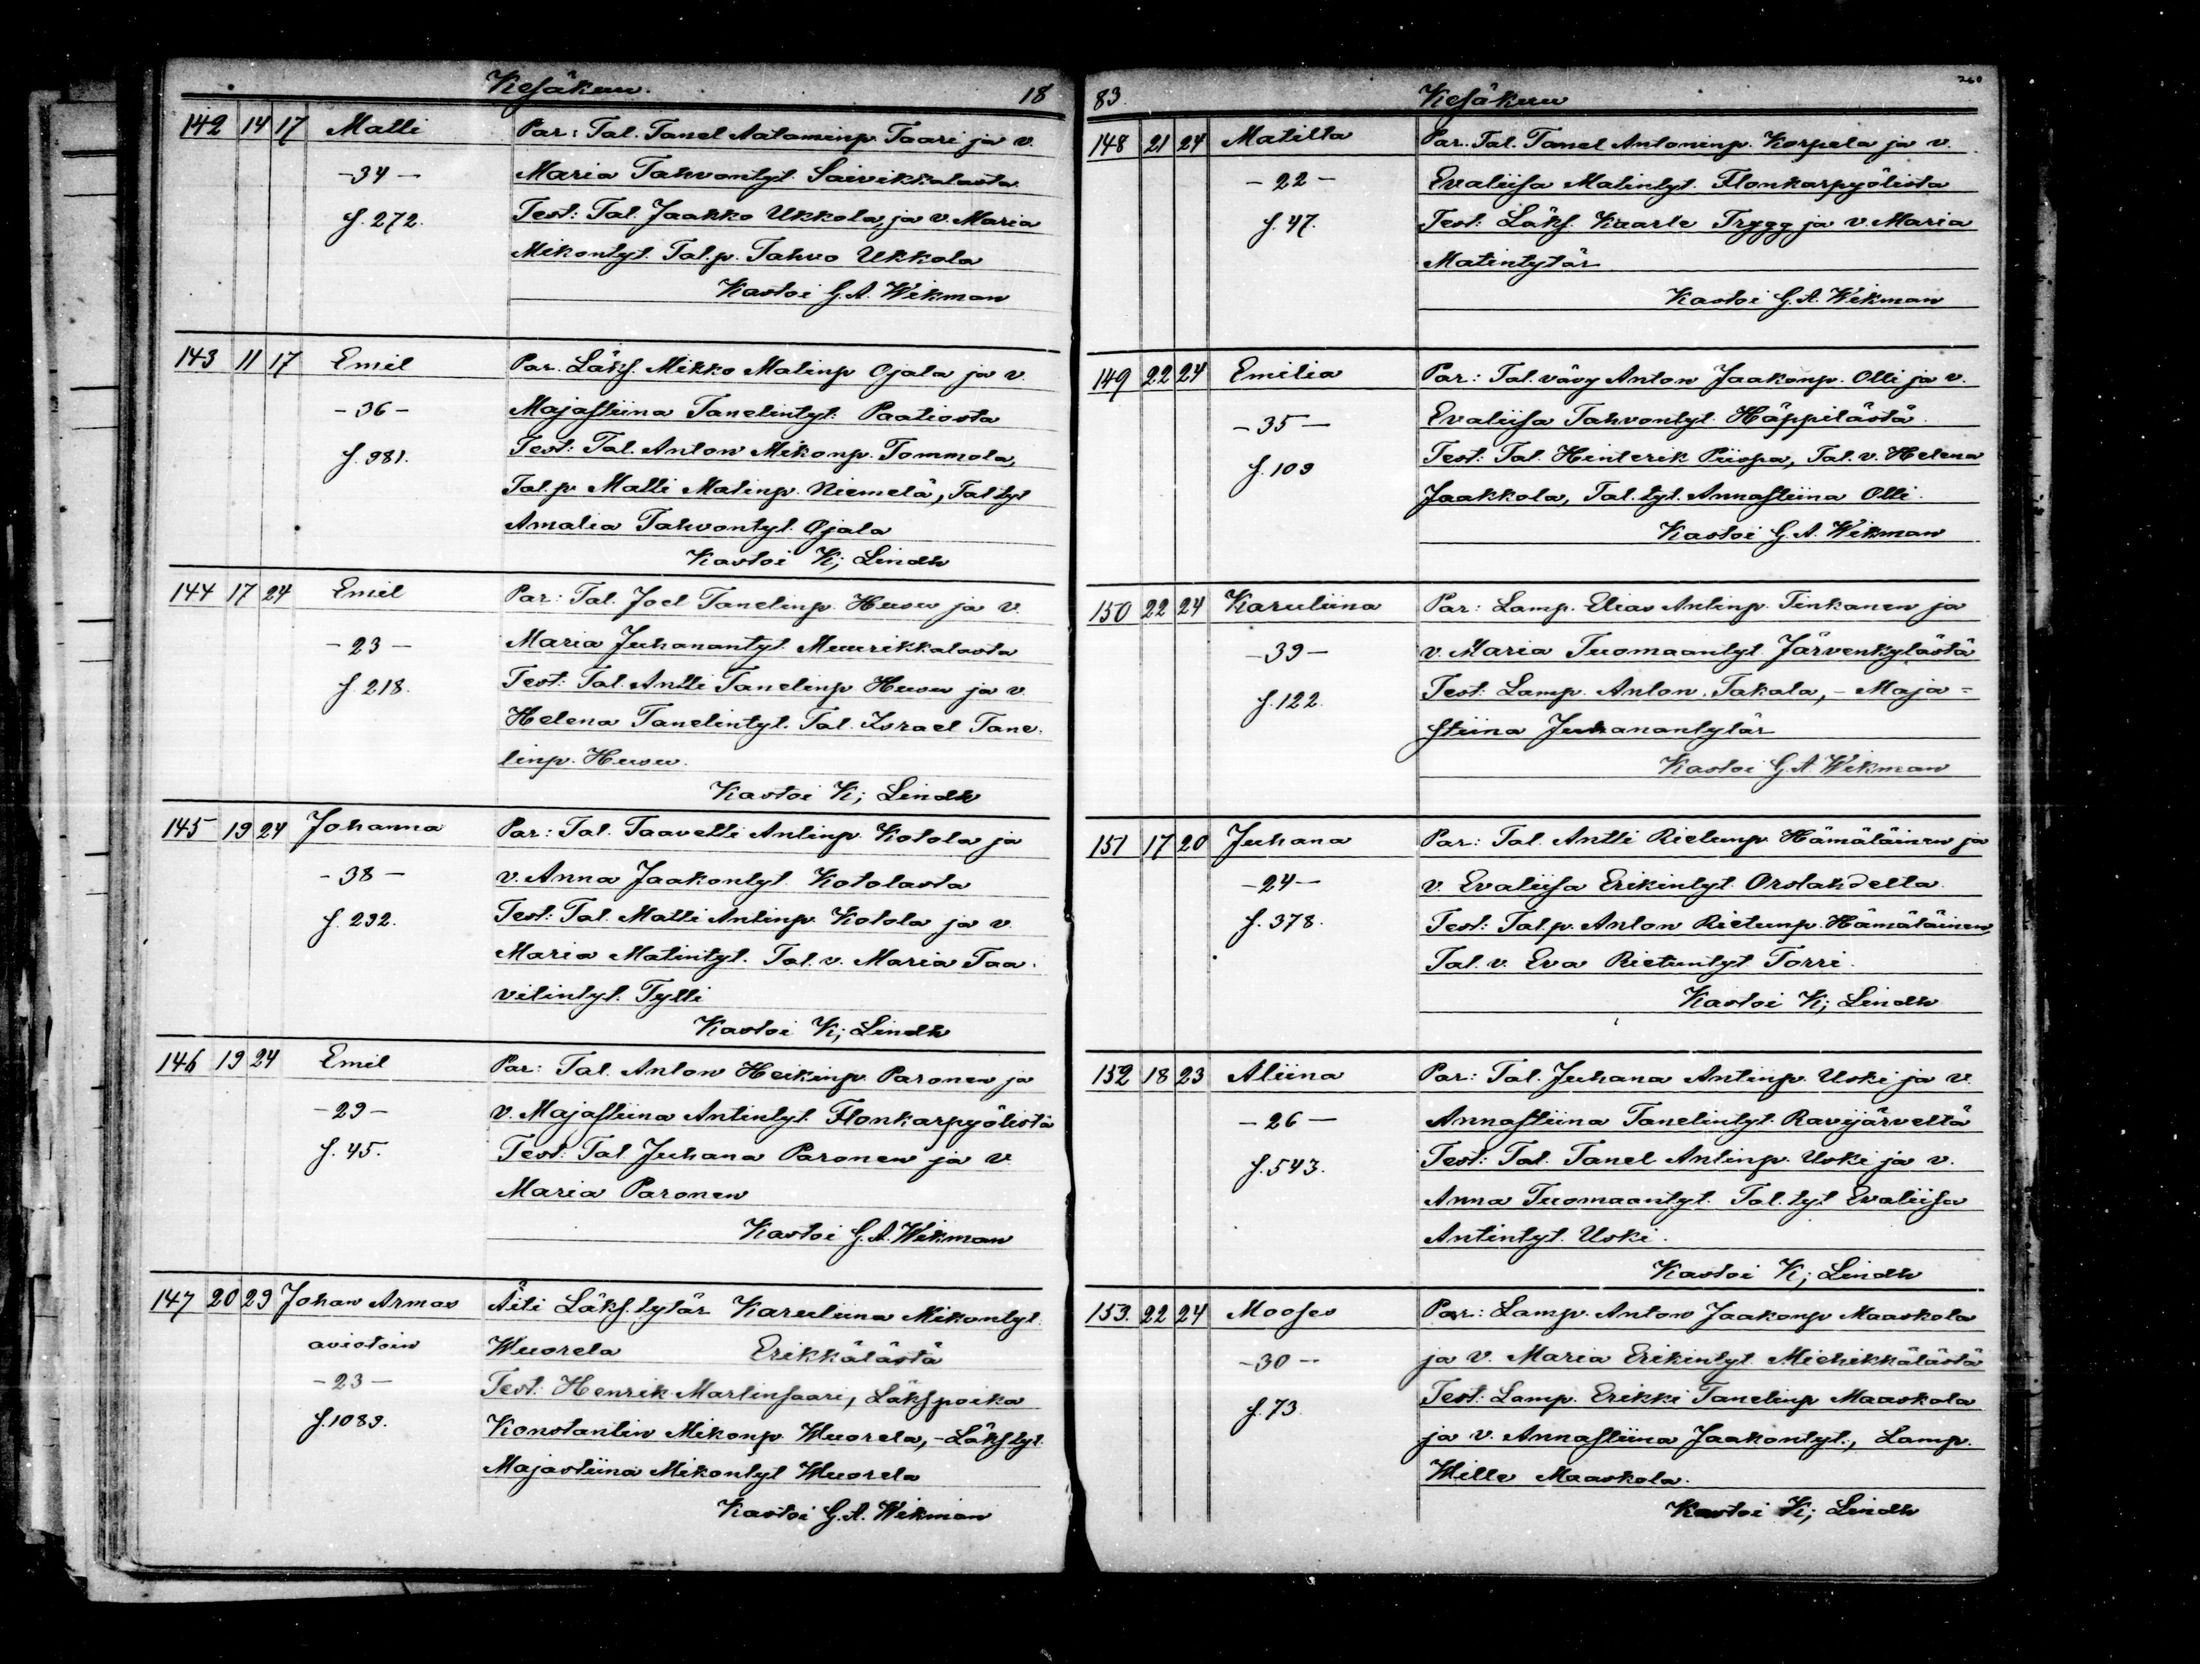 Kesäkuu. 18
142 14 17 Matti Par: Tal. Tanel Aataminp. Taari ja v.
-34- Maria Tahvontyt. Saivikkalasta
f. 272. Test: Tal. Jaakko Ukkola, ja v. Maria
Mikontyt. Tal.p. Tahvo Ukkola
Kastoi G.A. Wikman
143 11 17 Emil Par. Läks. Mikko Matinp Ojala ja v.
-36- Majastiina Tanelintyt. Paatiosta
f. 981. Test: Tal. Anton Mikonp. Tommola,
Tal.p. Matti Matinp. Niemelä, Tal tyt
Amalia Tahvontyt. Ojala
Kastoi K; Lindh
144 17 24 Emil Par: Tal. Joel Tanelinp. Husu ja v.
-23- Maria Juhanantyt. Muurikkalasta
f. 218. Test: Tal. Antti Tanelinp. Husu ja v.
Helena Tanelintyt. Tal. Israel Tane-
linp. Husu.
Kastoi K; Lindh
145 19 24 Johanna Par: Tal. Taavetti Antinp. Kotola ja
-38- v. Anna Jaakontyt. Kotolasta
f. 292. Test: Tal. Matti Antinp. Kotola ja v.
Maria Matintyt. Tal. v. Maria Taa-
vitintyt. Tylli
Kastoi K; Lindh
146 19 24 Emil Par: Tal. Anton Heikinp. Paronen ja
-29- v. Majastiina Antintyt. Flonkarpyölistä
f. 45. Test: Tal Juhana Paronen ja v.
Maria Paronen
Kastoi G.A. Wikman
147 20 29 Johan Armas Äiti Läks. tytär Karuliina Mikontyt.
aviotoin Wuorela Erikkälästä
-23- Test: Henrik Martinsaari, Läkspoika
f. 1089. Konstantin Mikonp. Wuorela, - Läkstyt.
Majastiina Mikontyt Wuorela
Kastoi G.A. Wikman
83. Kesäkuu 260
148 21 24 Matilta Par. Tal. Tanel Antoninp. Korpela ja v.
-22- Evaliisa Matintyt. Flonkarpyölistä
f. 47. Test: Läks. Kaarle Trygg, ja v. Maria
Matintytär
Kastoi G.A. Wikman
149 22 24 Emilia Par: Tal. vävy Anton Jaakonp. Olli ja v.
-35- Evaliisa Tahvontyt. Häppilästä.
f. 109 Test: Tal. Hinterik Piispa, Tal. v. Helena
Jaakkola, Tal. tyt. Annastiina Olli.
Kastoi G.A. Wikman
150 22 24 Karuliina Par: Lamp. Elias Antinp. Tinkanen ja
-39- v. Maria Tuomaantyt Järvenkylästä
f. 122. Test: Lamp. Anton. Takala, - Maja=
stiina Juhanantytär
Kastoi G.A. Wikman
151 17 20 Juhana Par: Tal. Antti Rietunp. Hämäläinen ja
-24- v. Evaliisa Erikintyt. Orslahdelta.
f. 378. Test: Tal.p. Anton Rietunp. Hämäläinen,
Tal. v. Eva Rietuntyt. Torri.
Kastoi K; Lindh
152 18 23 Aliina Par: Tal. Juhana Antinp. Uski ja v.
-26- Annastiina Tanelintyt. Ravijärveltä
f. 543. Test: Tal. Tanel Antinp. Uski ja v.
Anna Tuomaantyt. Tal. tyt Evaliisa
Antintyt. Uski.
Kastoi K; Lindh
153. 22 24 Mooses Par: Lamp. Anton Jaakonp Maaskola
-30- ja v. Maria Erikintyt. Miehikkälästä
f. 73. Test: Lamp. Erikki Tanelinp Maaskola
ja v. Annastiina Jaakontyt., Lamp.
Wille Maaskola.
Kastoi K; Lindh